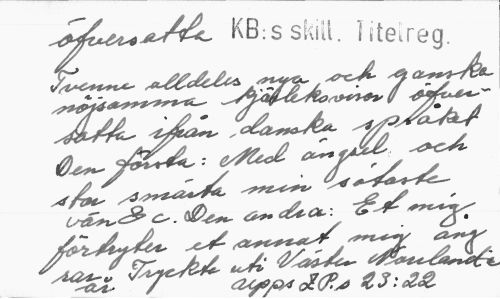 öfversatta KB:s skill. Titelreg.
Tvenne alldeles nya och ganska
nöjsamma kjärleksvisor öfver-
satta ifrån danska språket
Den första: Med ängsel och
stor smärta min sötaste
vän &c. Den andra: Et mig
förtryter et annat mig ång
rar Tryckte uti Västu Norrland i
år upps Z.P.s 23:22